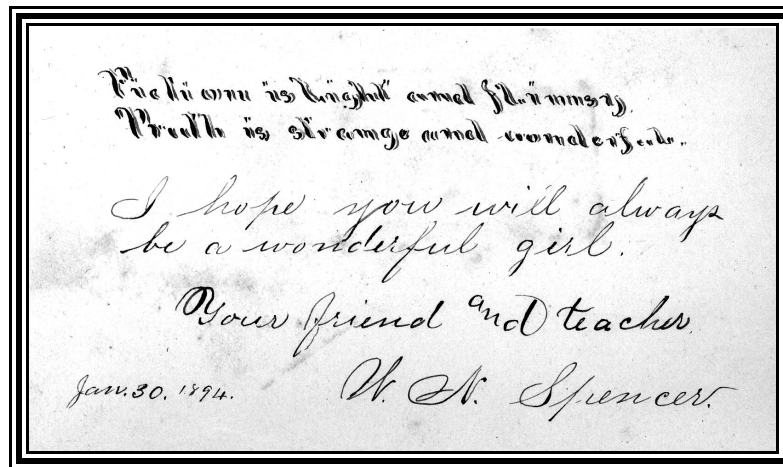 Fiction is light and flimsy,
Truth is strange and wonderful.
I hope you will always
be a wonderful girl.
Your friend and teacher
W. N. Spencer.
Jan. 30. 1894.